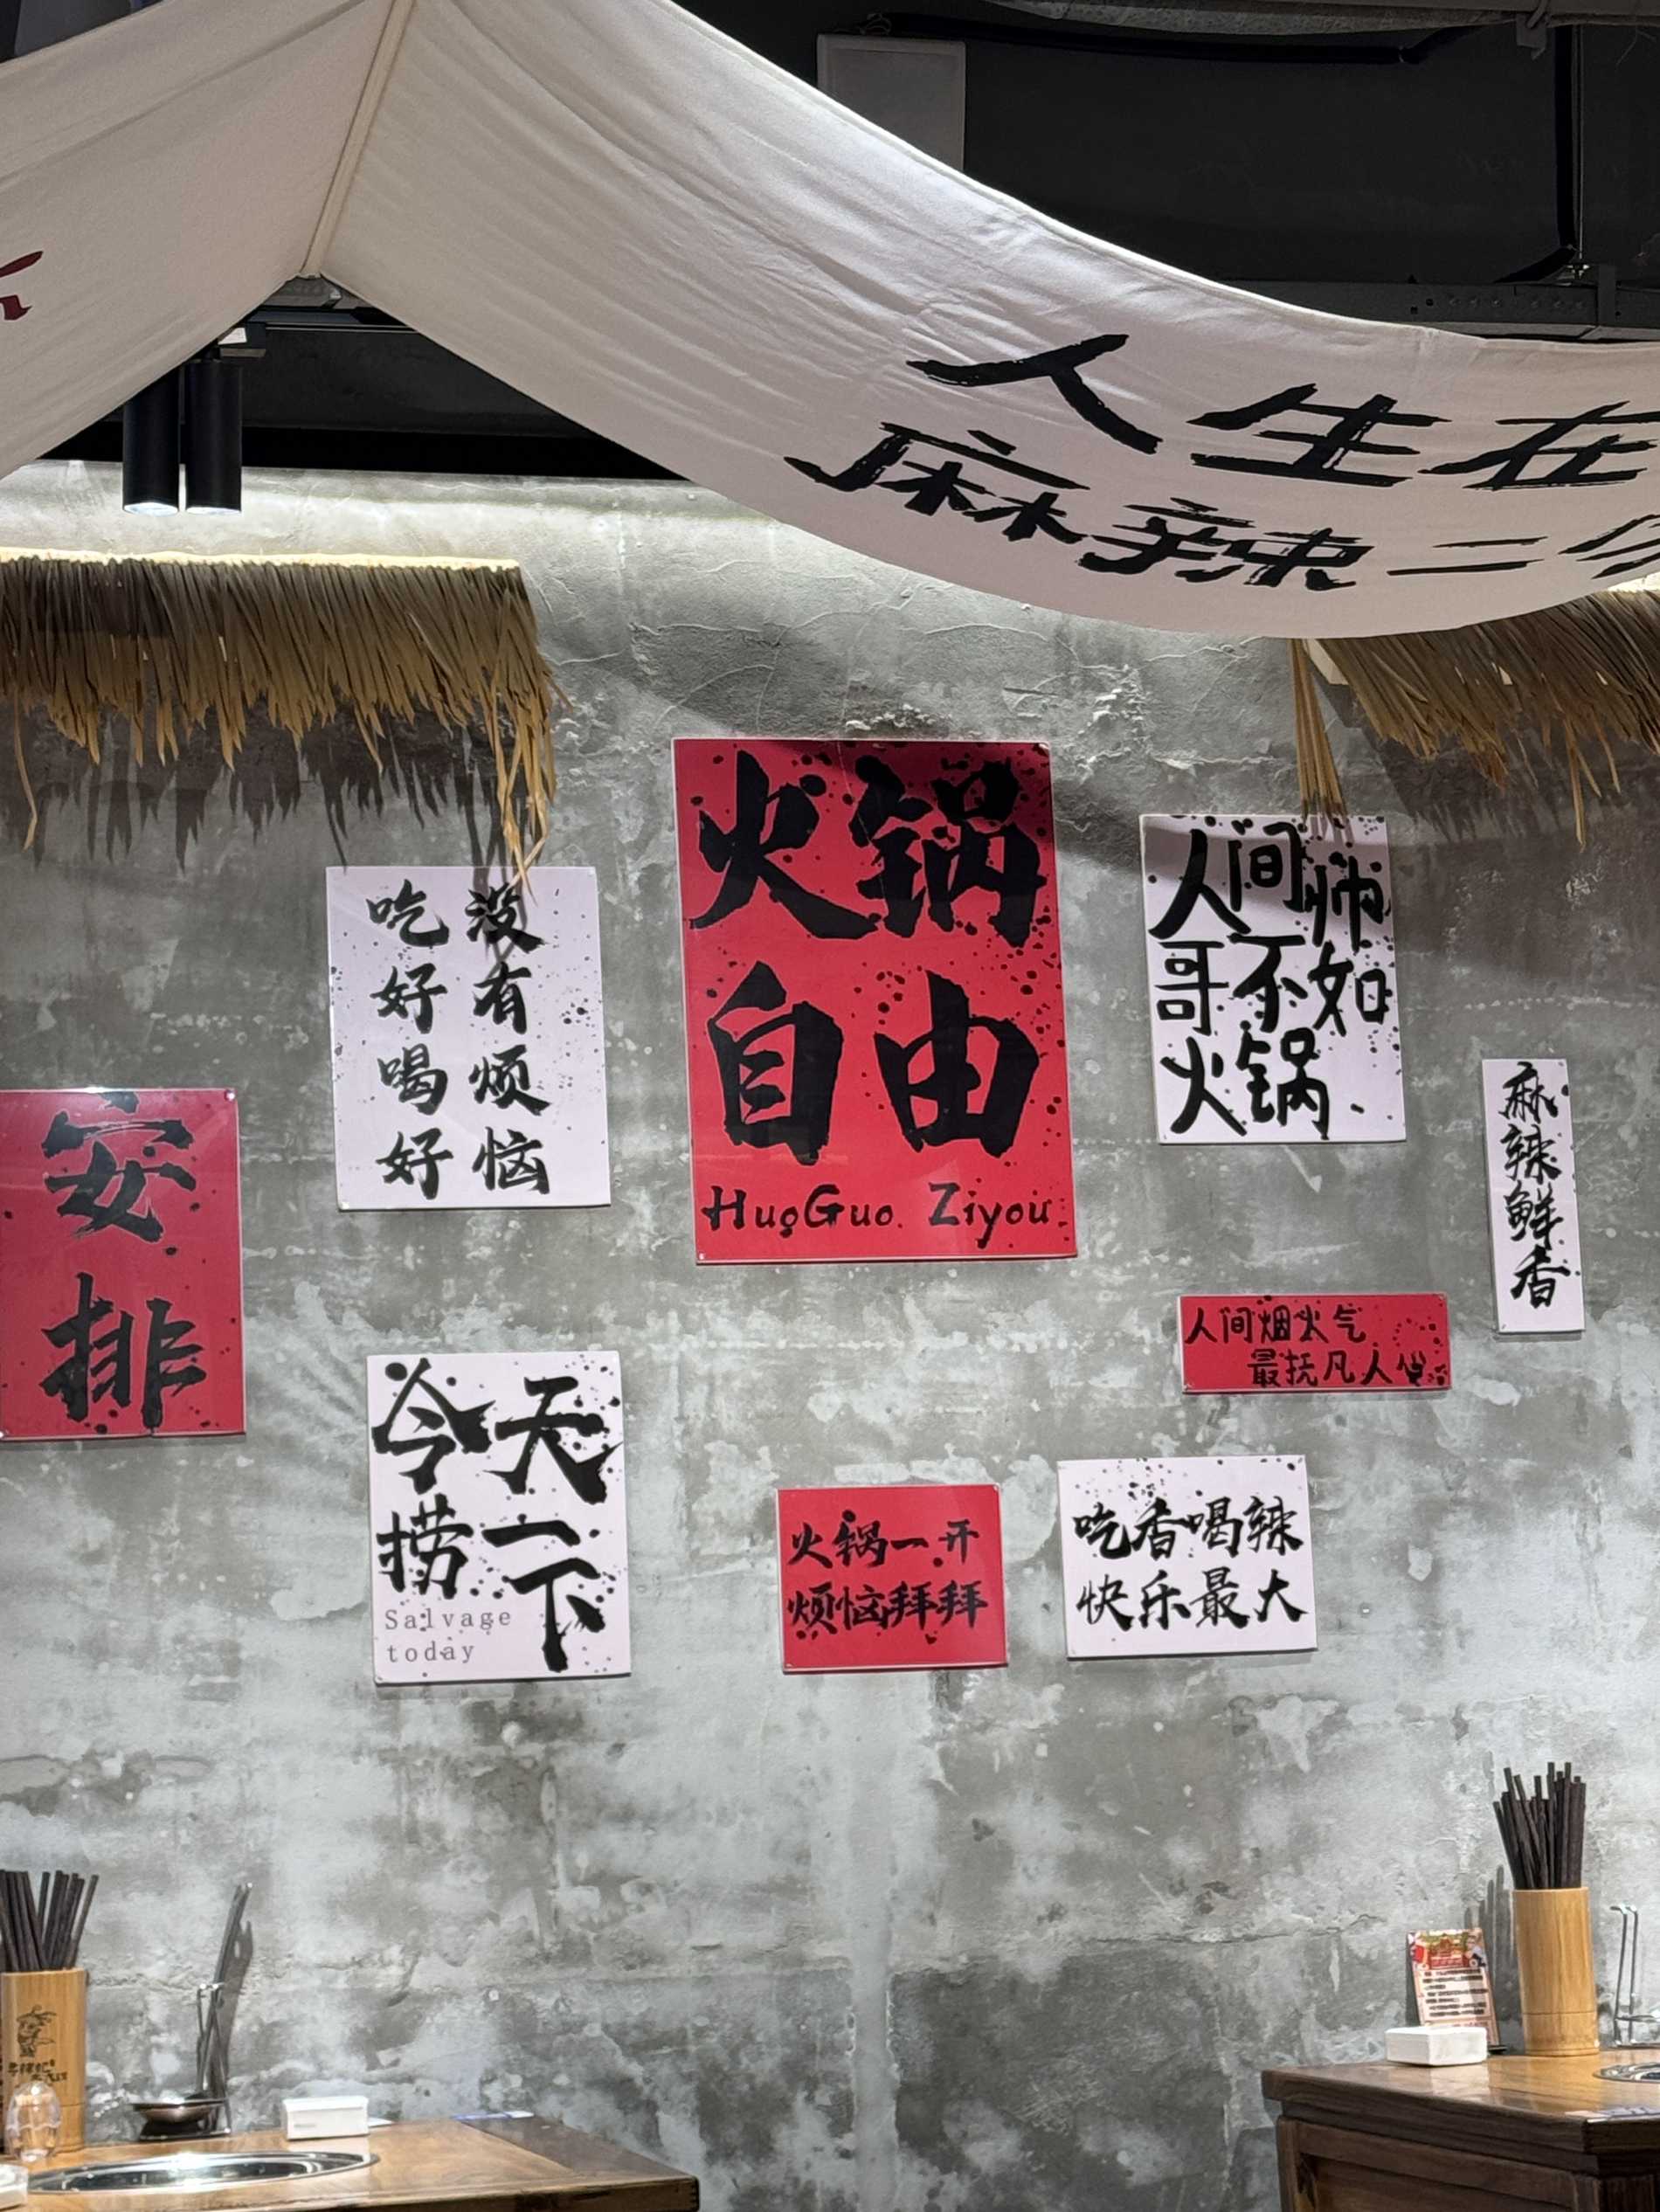 人生在
麻辣二
火锅
自由
HuoGuo Ziyou
吃好喝好
没有烦恼
人间帅
哥不如
火锅.
麻辣鲜香
安排
人间烟火气
最抚凡人心
今天
捞一下
Salvage
today
火锅一开
烦恼拜拜
吃香喝辣
快乐最大